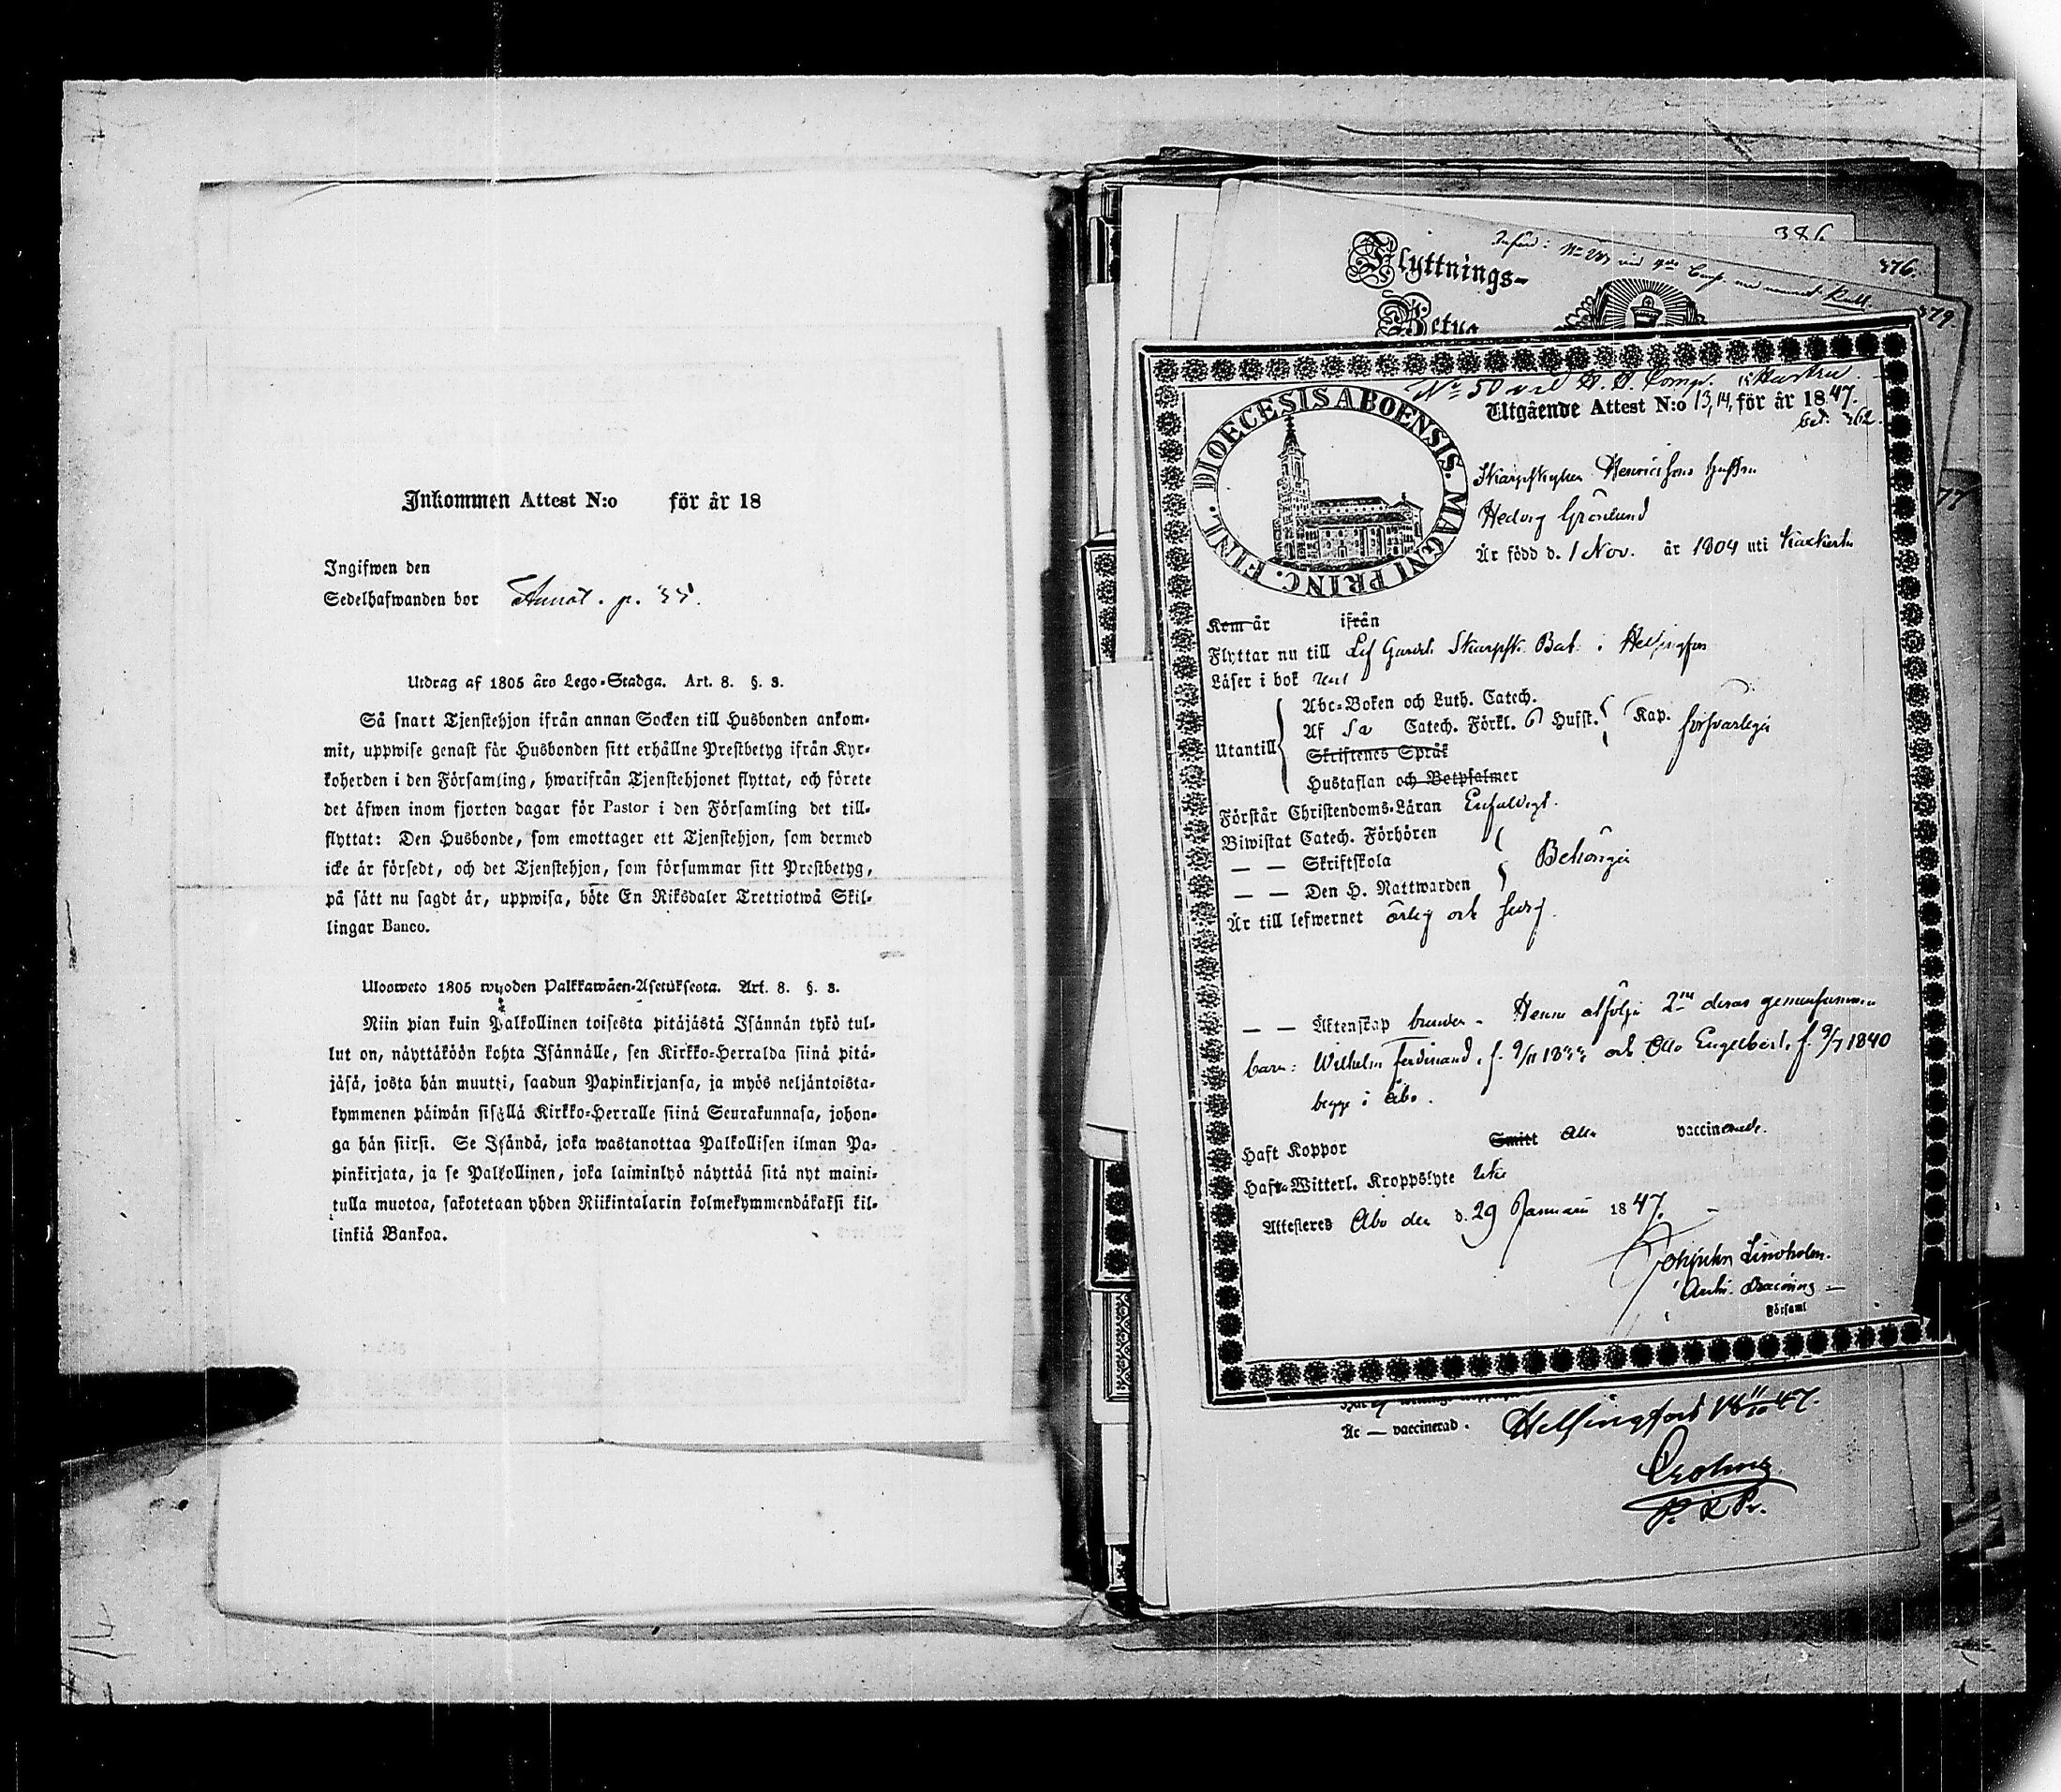 Inkommen Attest N:o för år 18
Ingifwen den
Sedelhafwanden bor p. 35.
Utdrag af 1805 års Lego-Stadga. Art. 8. §. 3.
Så snart Tjenstehjon ifrån annan Socken till Husbonden ankom-
mit, uppwise genast för Husbonden sitt erhållne Prestbetyg ifrån Kyr-
koherden i den Församling, hwarifrån Tjenstehjonet flyttat, och förete
det äfwen inom fjorton dagar för Pastor i den Församling det till-
flyttat: Den Husbonde, som emottager ett Tjenstehjon, som dermed
icke är försedt, och det Tjenstehjon, som försummar sitt Prestbetyg,
på sätt nu sagdt är, uppwisa, böte En Riksdaler Trettiotwå Skil-
lingar Banco.
Uloosweto 1805 wuoden Palkkawäen-Asetuksesta. Art. 8. §. 3.
Niin pian kuin Palkollinen toisesta pitäjästä Isännän tykö tul-
lut on, näyttäköön kohta Isännälle, sen Kirkko-Herralda siinä pitä-
jäsä, josta hän muutti, saadun Papinkirjansa, ja myös neljäntoista-
kymmenen päiwän sisällä Kirkko-Herralle siinä Seurakunnasa, johon-
ga hän siirsi. Se Isändä, joka wastanottaa Palkollisen ilman Pa-
pinkirjata, ja se Palkollinen, joka laiminlyö näyttää sitä nyt maini-
tulla muotoa, sakotetaan yhden Riikintalarin kolmekymmendäkaksi kil-
linkiä Bankoa.
376.
379.
77
Flyttnings-
Betyg
No 50 Comp. Hustru
Utgående Attest N:o 13, 14, för år 1847.
DIOECESIS ABOENSIS. MAGNI PRINC. FINL.
Henricssons
Hedvig Grönlund
Är född d. 1 Nov. år 1804 uti
Kom år ifrån
Flyttar nu till Lif Gardets Skarpsk. Bat. i Helsingfors
Läser i bok rent
Utantill
Abc-Boken och Luth. Catech.
Af Sv Catech. Förkl. Hufst. Kap. försvarligen
Skriftenes Språk
Hustaflan och Botpsalmer
Förstår Christendoms-Läran Enfaldigt.
Biwistat Catech. Förhören
— — Skriftskola
— — Den H. Nattwarden
Behörigen
Är till lefwernet ärlig och
— — Äktenskap bunden - Henne åtfölja 2ne deras gemensamma
barn: Wilhelm Ferdinand, f. 9/11 och Otto Engelbert, f. 9/7 1840
begge i Åbo.
Haft Koppor Smitt Alla vaccinerade.
Haft Witterl. Kroppslyte
Attesteres Åbo den d. 29 Januari 1847.
Lindholm.
Församl
Är — vaccinerad. Helsingfors 18 47.